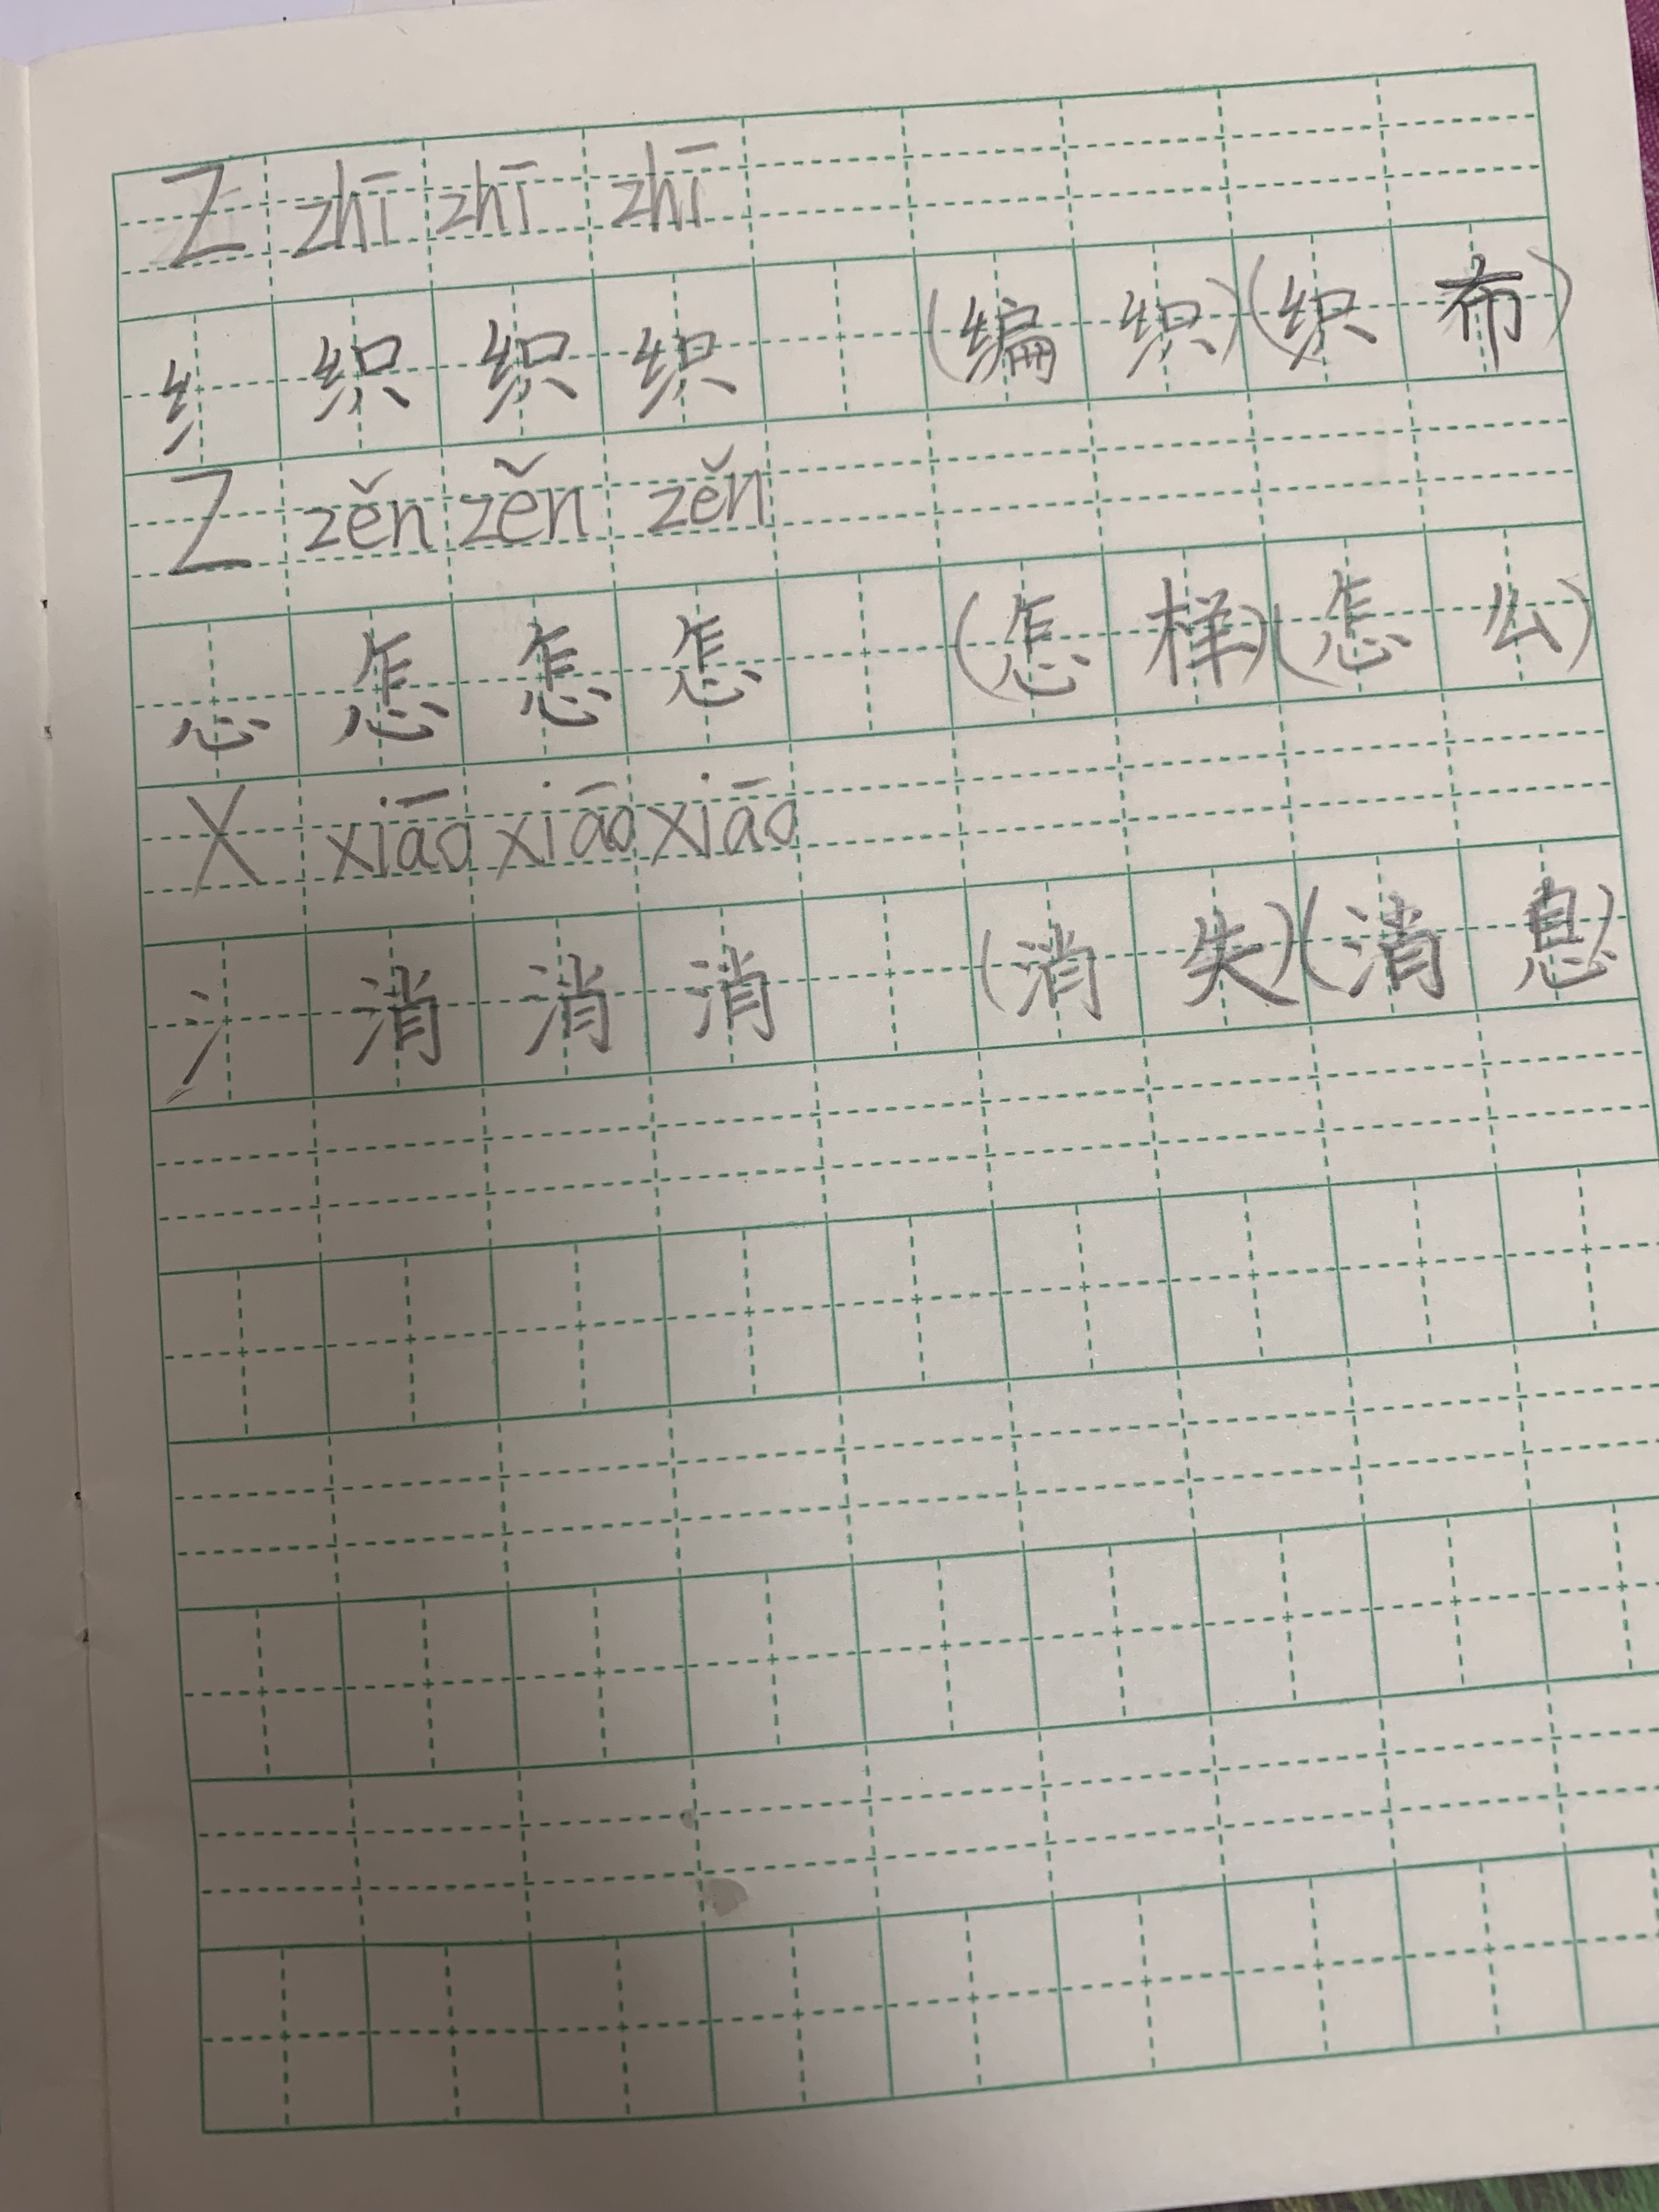 Z zhī zhī zhī
纟 织 织 织 (编 织)(织 布)
Z zěn zěn zěn
心 怎 怎 怎 (怎 样)(怎 么)
X xiāo xiāo xiāo
氵 消 消 消 (消 失)(消 息)